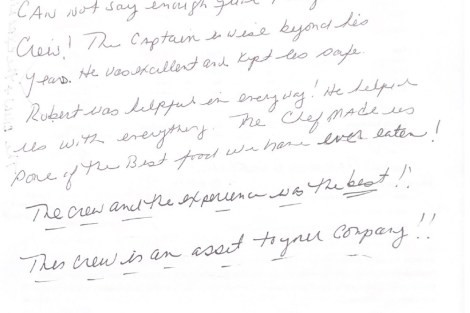 CAN not say enough
Crew! The Captain is wise beyond his
years. He was excellent and kept us safe.
Robert was helpful in every way! He helped
us with everything. The Chef made us
some of the Best food we have ever eaten!
The crew and the experience was the best!!
This crew is an asset to your Company!!